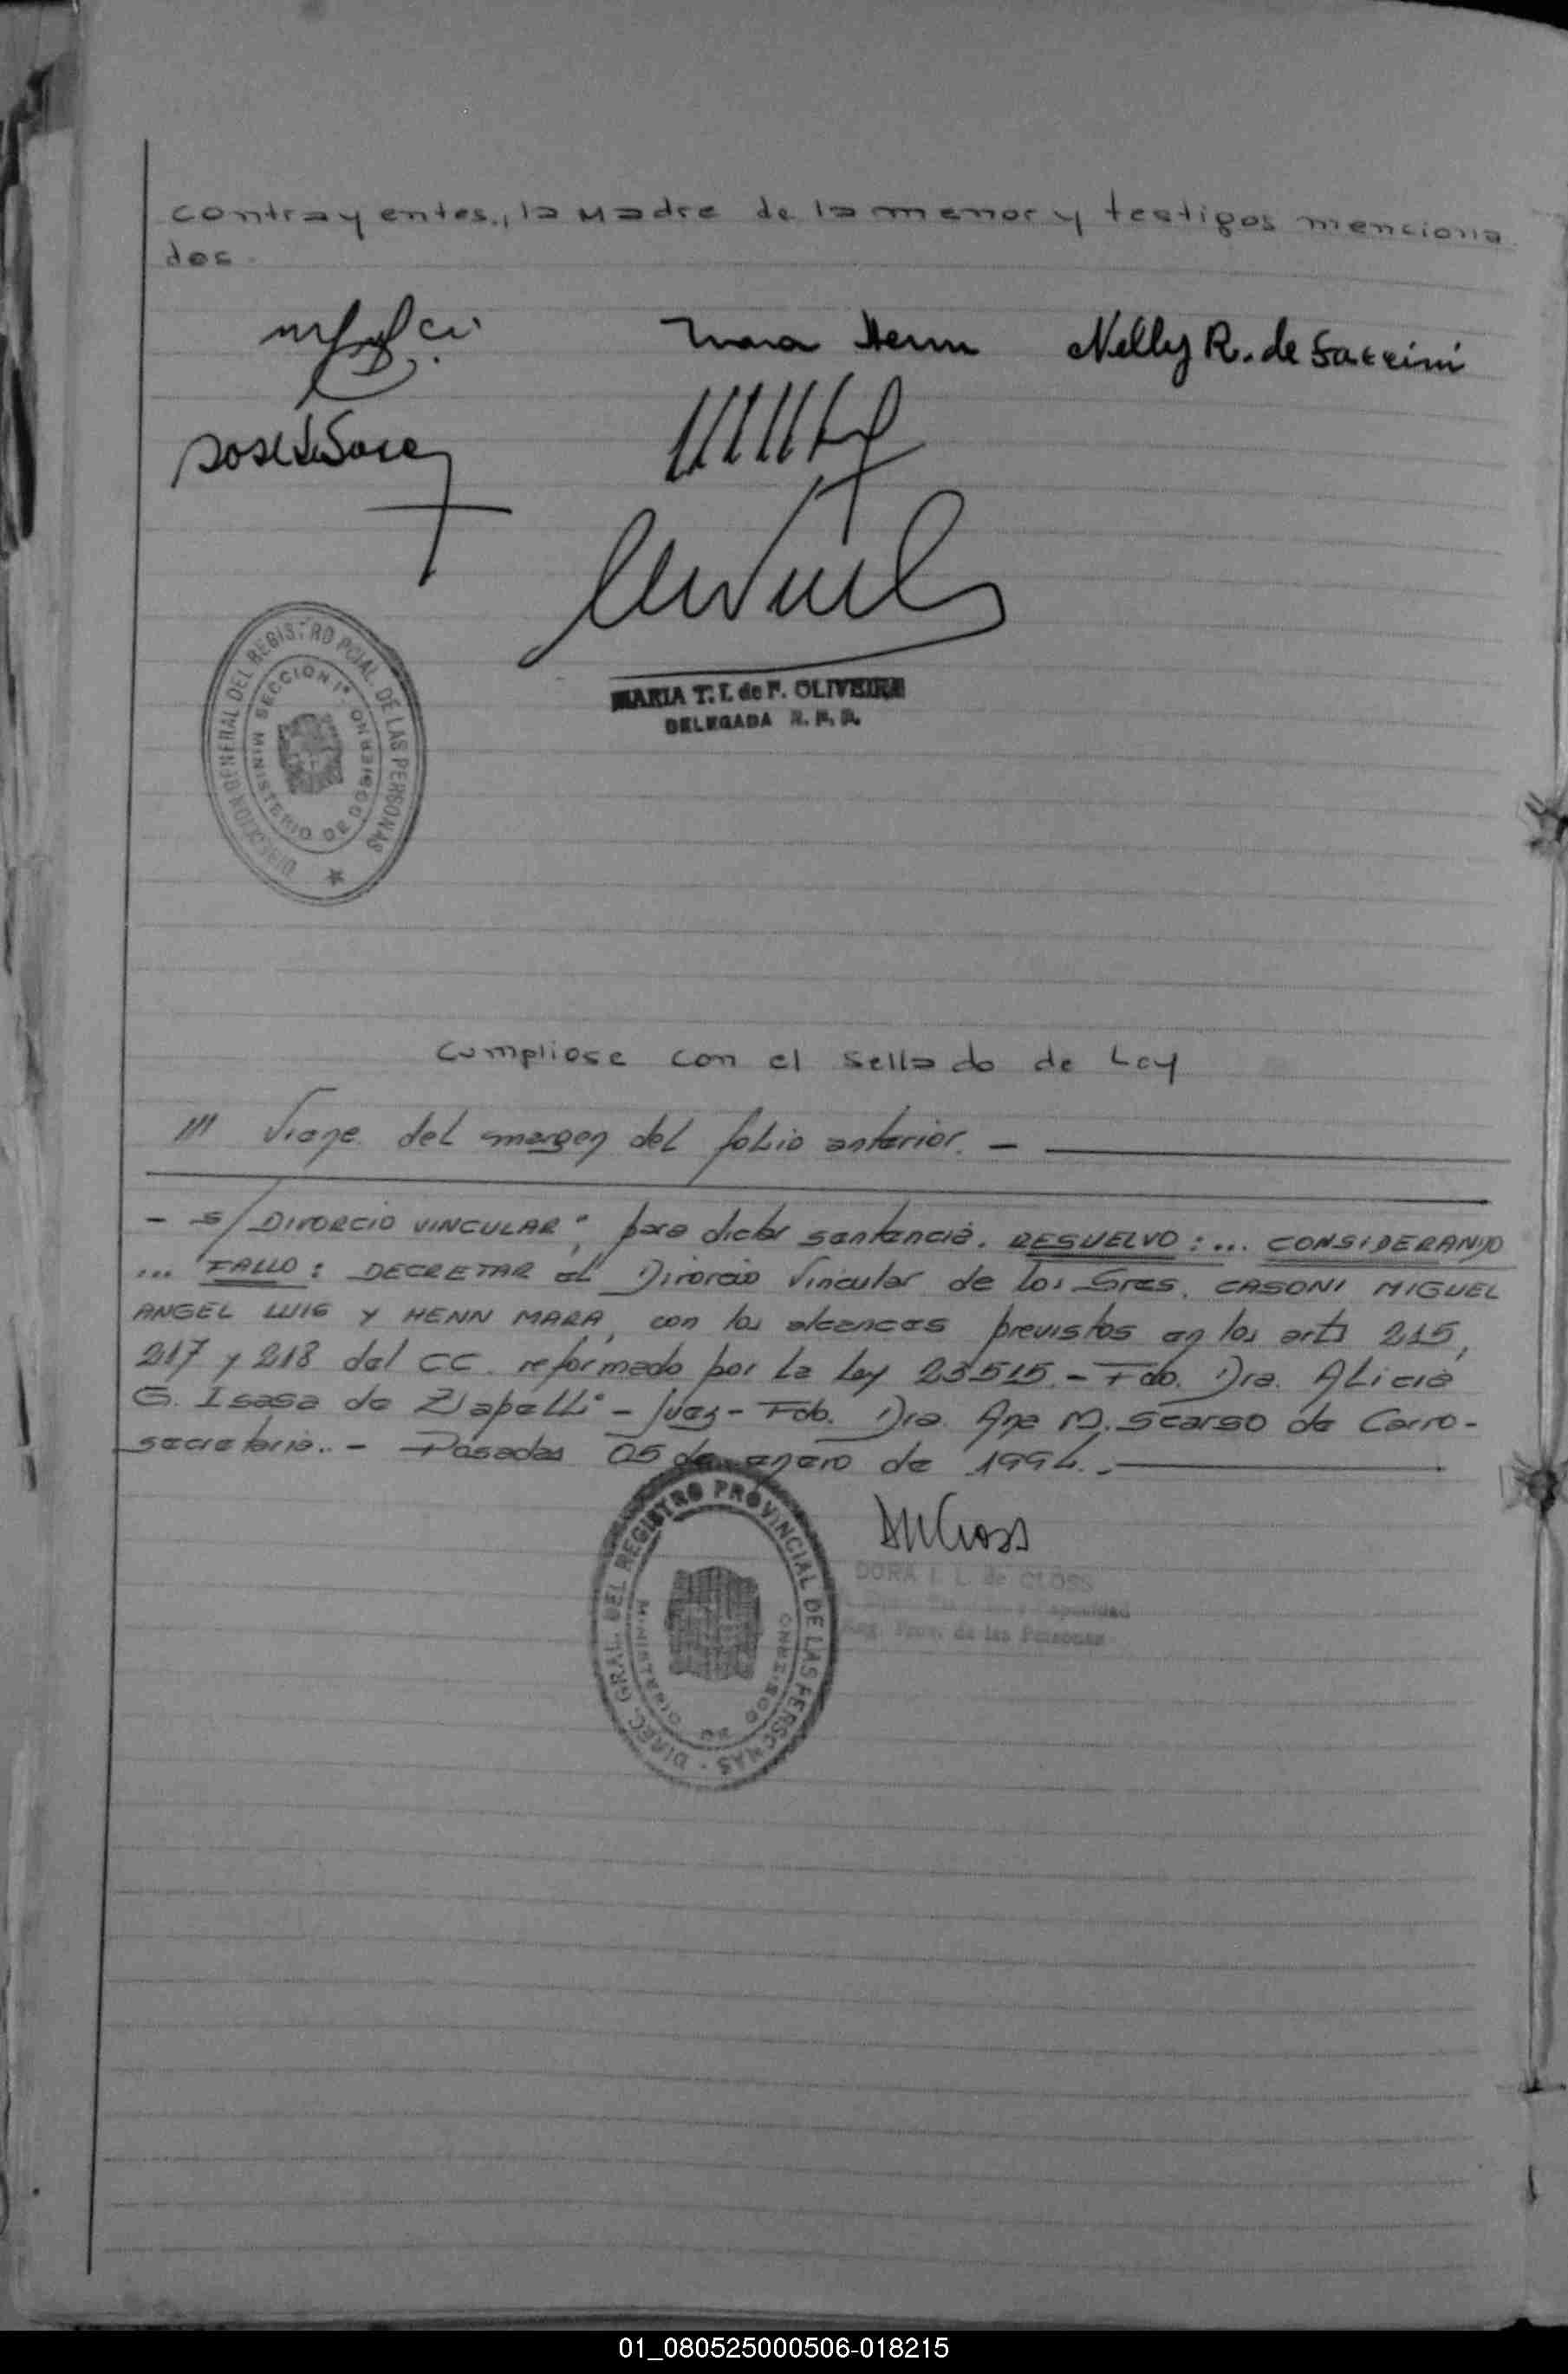 contrayentes., la Madre de la menor y testigos menciona
dos.
Mara Henn Nelly R. de
DIRECCION GENERAL DEL REGISTRO PCIAL. DE LAS PERSONAS
SECCION 1ª MINISTERIO DE GOBIERNO
MARIA T. I. de F. OLIVEIRA
DELEGADA R. P. P.
Cumpliose con el sellado de Ley
/// Viene del margen del folio anterior. -
- s/ DIVORCIO VINCULAR", para dictar sentencia. RESUELVO: ... CONSIDERANDO
... FALLO: DECRETAR el Divorcio Vincular de los Sres. CASONI MIGUEL
ANGEL LUIS Y HENN MARA, con los alcances previstos en los arts 215,
217 y 218 del CC. reformado por la Ley 23515. - Fdo. Dra. Alicia
G. Isasa de Zapelli - Juez - Fdo. Dra. Ana M. Scarso de Carro -
secretaria. - Posadas 05 de enero de 1994. -
DIREC. GRAL. DEL REGISTRO PROVINCIAL DE LAS PERSONAS
MINISTERIO DE GOBIERNO
DORA I. L. de CLOSS
Capacidad
Reg. Prov. de las Personas
01_080525000506-018215